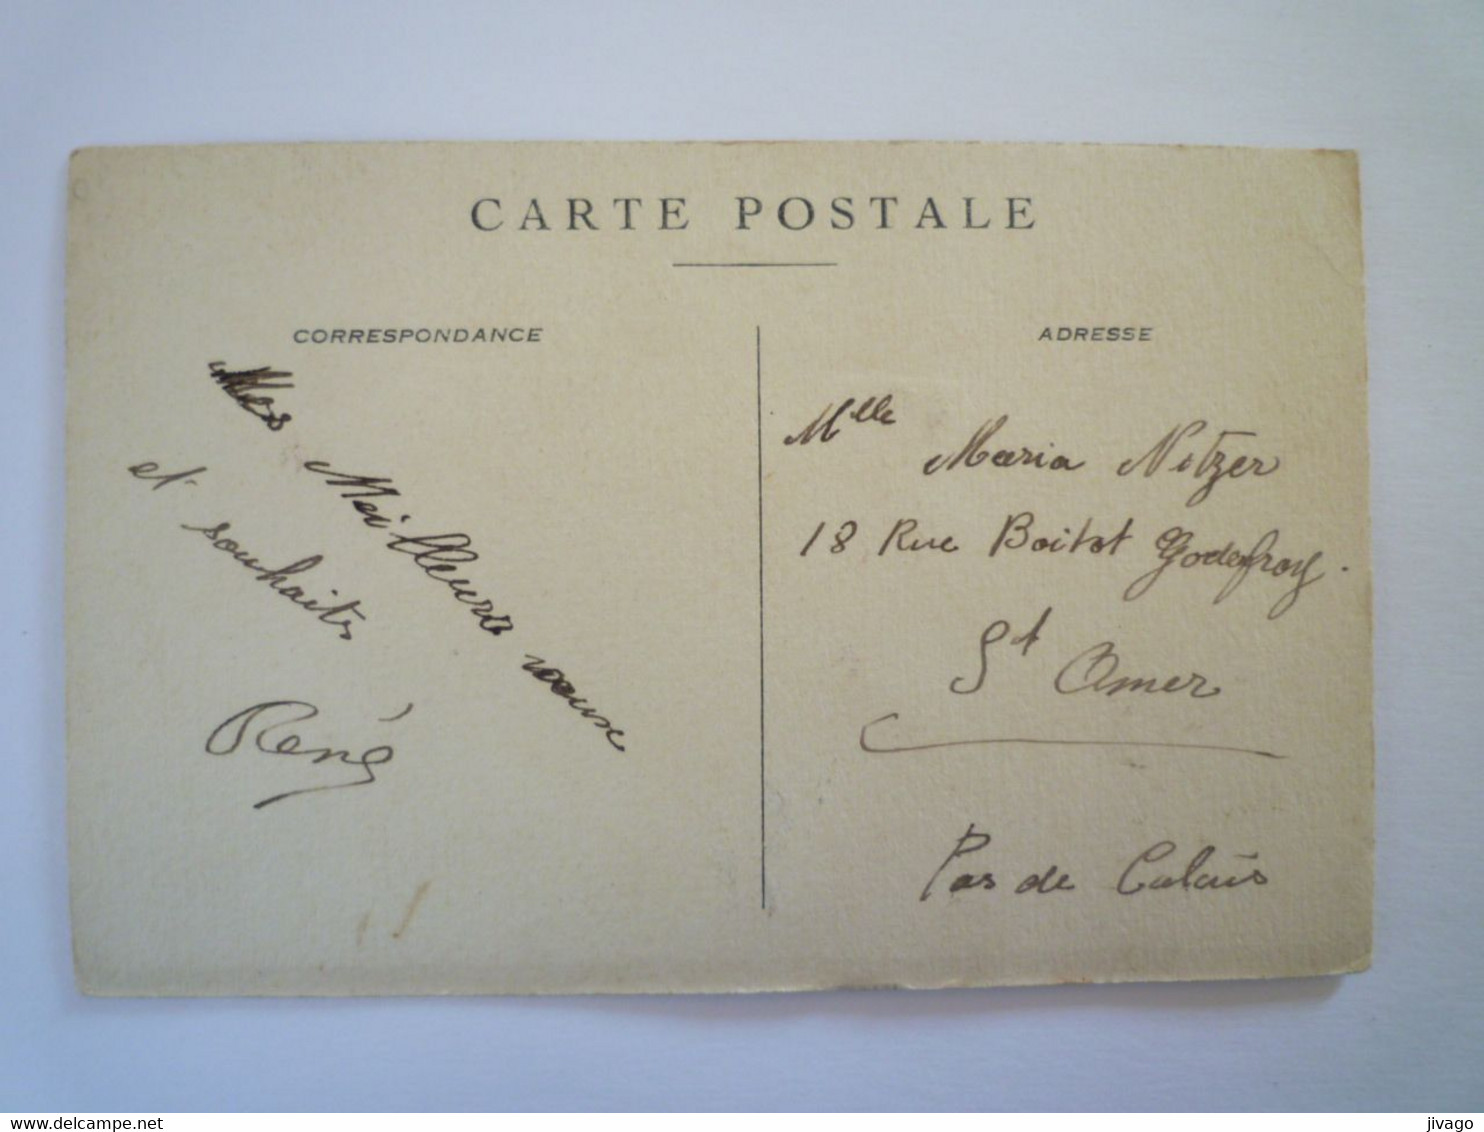 CARTE POSTALE
CORRESPONDANCE
Mes Meilleurs voeux
et souhaits
René
ADRESSE
Mlle
Maria Nitzer
18 Rue Boitot Godefroy.
St Omer
Pas de Calais
delcampe.net
jivago